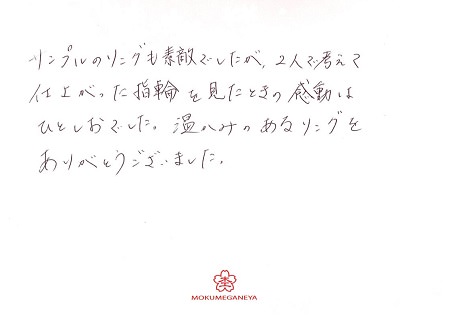 サンプルのリングも素敵でしたが、2人で考えて
仕上がった指輪を見たときの感動は
ひとしおでした。温かみのあるリングを
ありがとうございました。
MOKUMEGANEYA